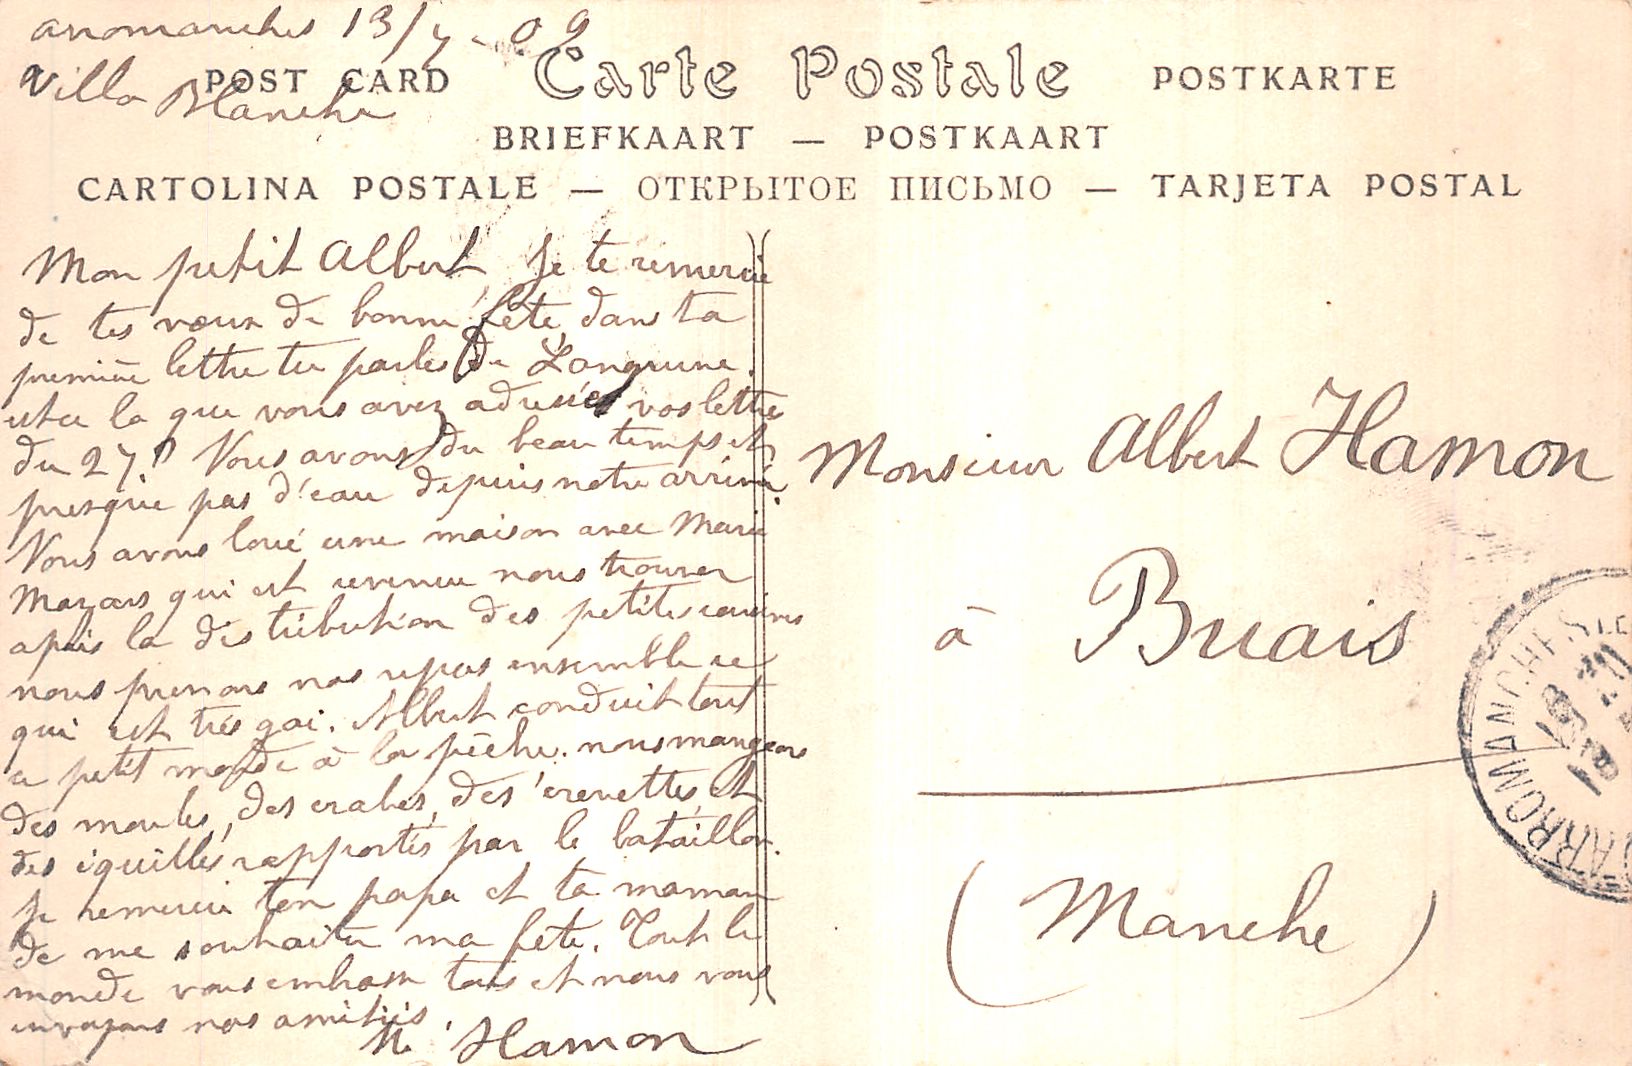 arromanches 13/7 - 09
Villa Blanche
POST CARD Carte Postale POSTKARTE
BRIEFKAART — POSTKAART
CARTOLINA POSTALE — ОТКРЫТОЕ ПИСЬМО — TARJETA POSTAL
Mon petit Albert, Je te remercie
de tes vœux de bonne fête, dans ta
première lettre tu parles de Langrune.
est ce la que vous avez adressées vos lettres
du 27? Nous avons du beau temps et
presque pas d'eau depuis notre arrivée.
Nous avons loué une maison avec Marie
Mazars qui est revenue nous trouver
après la distribution des petites cousines
nous prenons nos repas ensemble ce
qui est très gai. Albert conduit tout
ce petit monde à la pêche. nous mangeons
des moules, des crabes, des crevettes, et
des équilles rapportés par le bataillon.
Je remercie ton papa et ta maman
de me souhaiter ma fête. Tout le
monde vous embrasse tous et nous vous
envoyons nos amitiés.
Hamon
Monsieur Albert Hamon
à Buais
(Manche)
ARROMANCHES LES